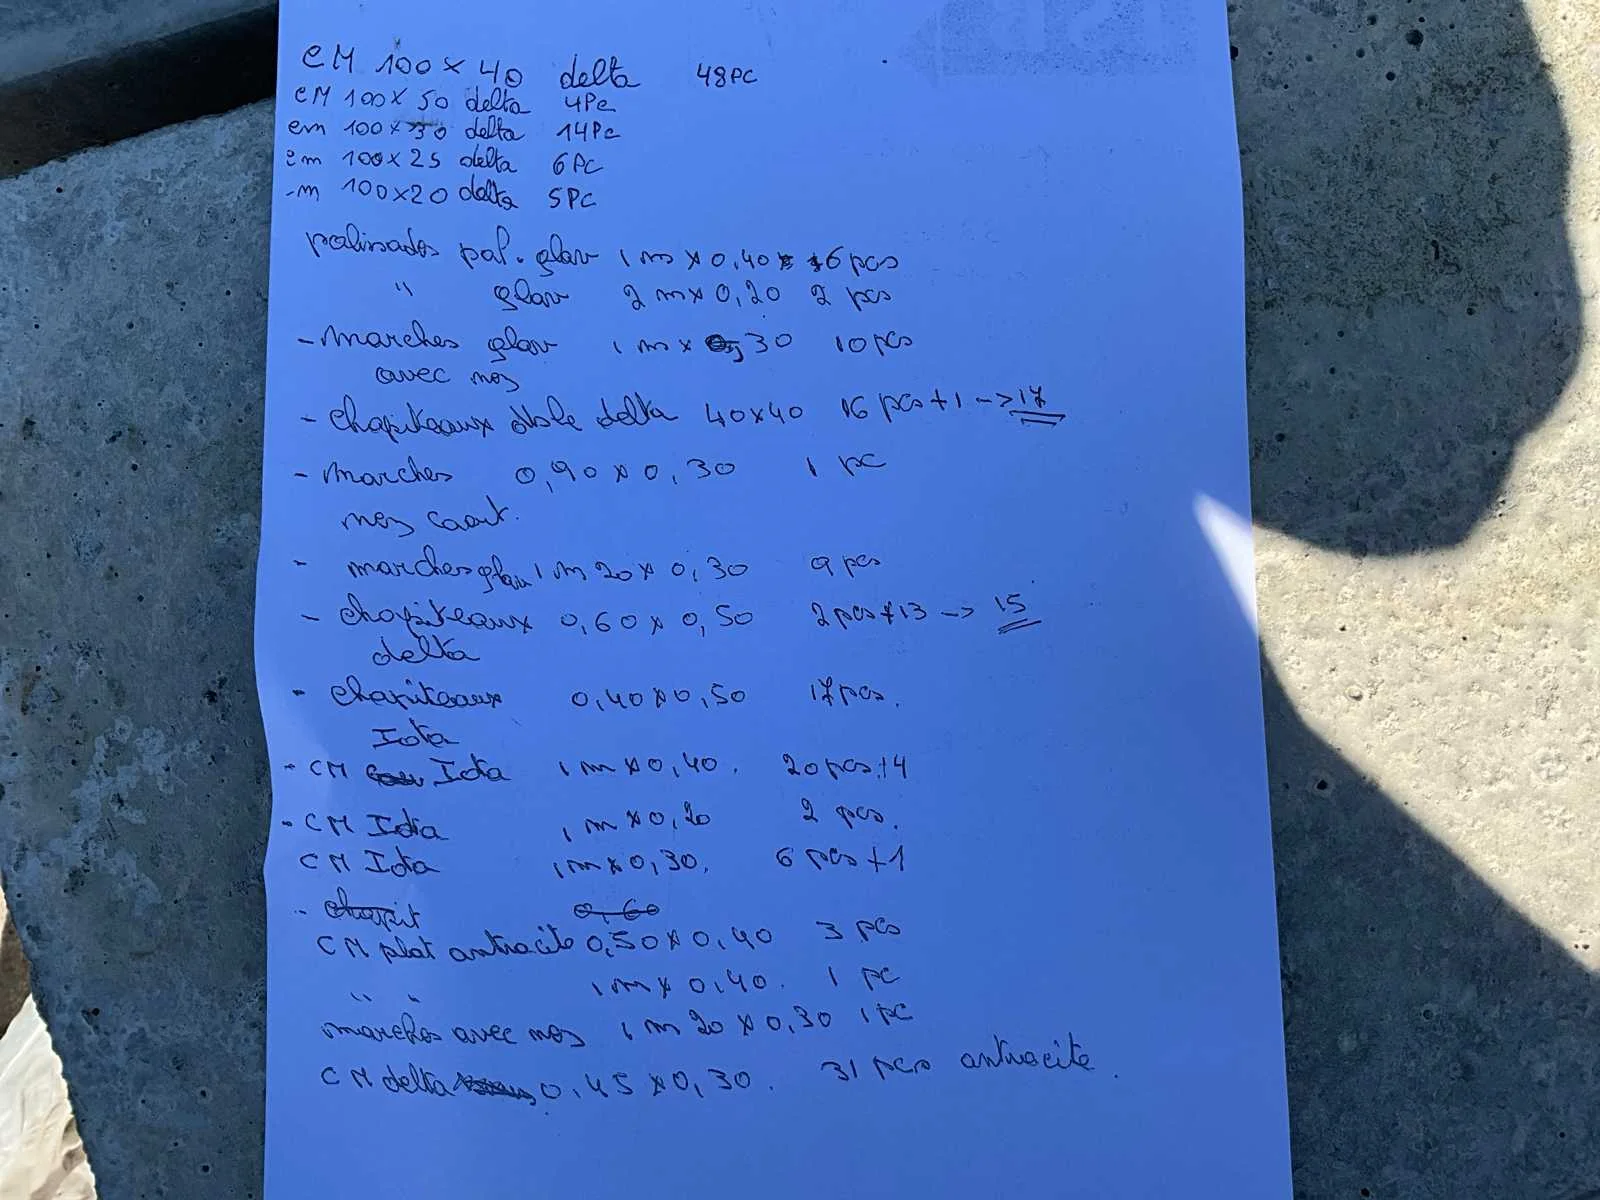 CM 100 x 40 delta 48PC
CM 100 x 50 delta 4Pc
cm 100 x 30 delta 14Pc
cm 100 x 25 delta 6PC
-m 100x20 delta 5PC
palissades pal. glav 1 m x 0,40 x 6 pcs
" glav 2 m x 0,20 2 pcs
- Marches glav 1 m x 0,30 10 pcs
avec nez
- Chapiteaux delta 40x40 16 pcs + 1 -> 17
- Marches 0,90 x 0,30 1 pc
nez
- marches glav 1 m 20 x 0,30 9 pcs
- Chapiteaux 0,60 x 0,50 2 pcs + 13 -> 15
delta
- Chapiteaux 0,40 x 0,50 17 pcs.
Iota
- CM Iota 1 m x 0,40. 20 pcs + 4
- CM Iota 1 m x 0,20 2 pcs.
CM Iota 1 m x 0,30. 6 pcs + 1
- chapit 0,60
CM plat antracite 0,50 x 0,40 3 pcs
" " 1 m x 0,40. 1 pc
marches avec nez 1 m 20 x 0,30 1 pc
CM delta 0,45 x 0,30. 31 pcs antracite.